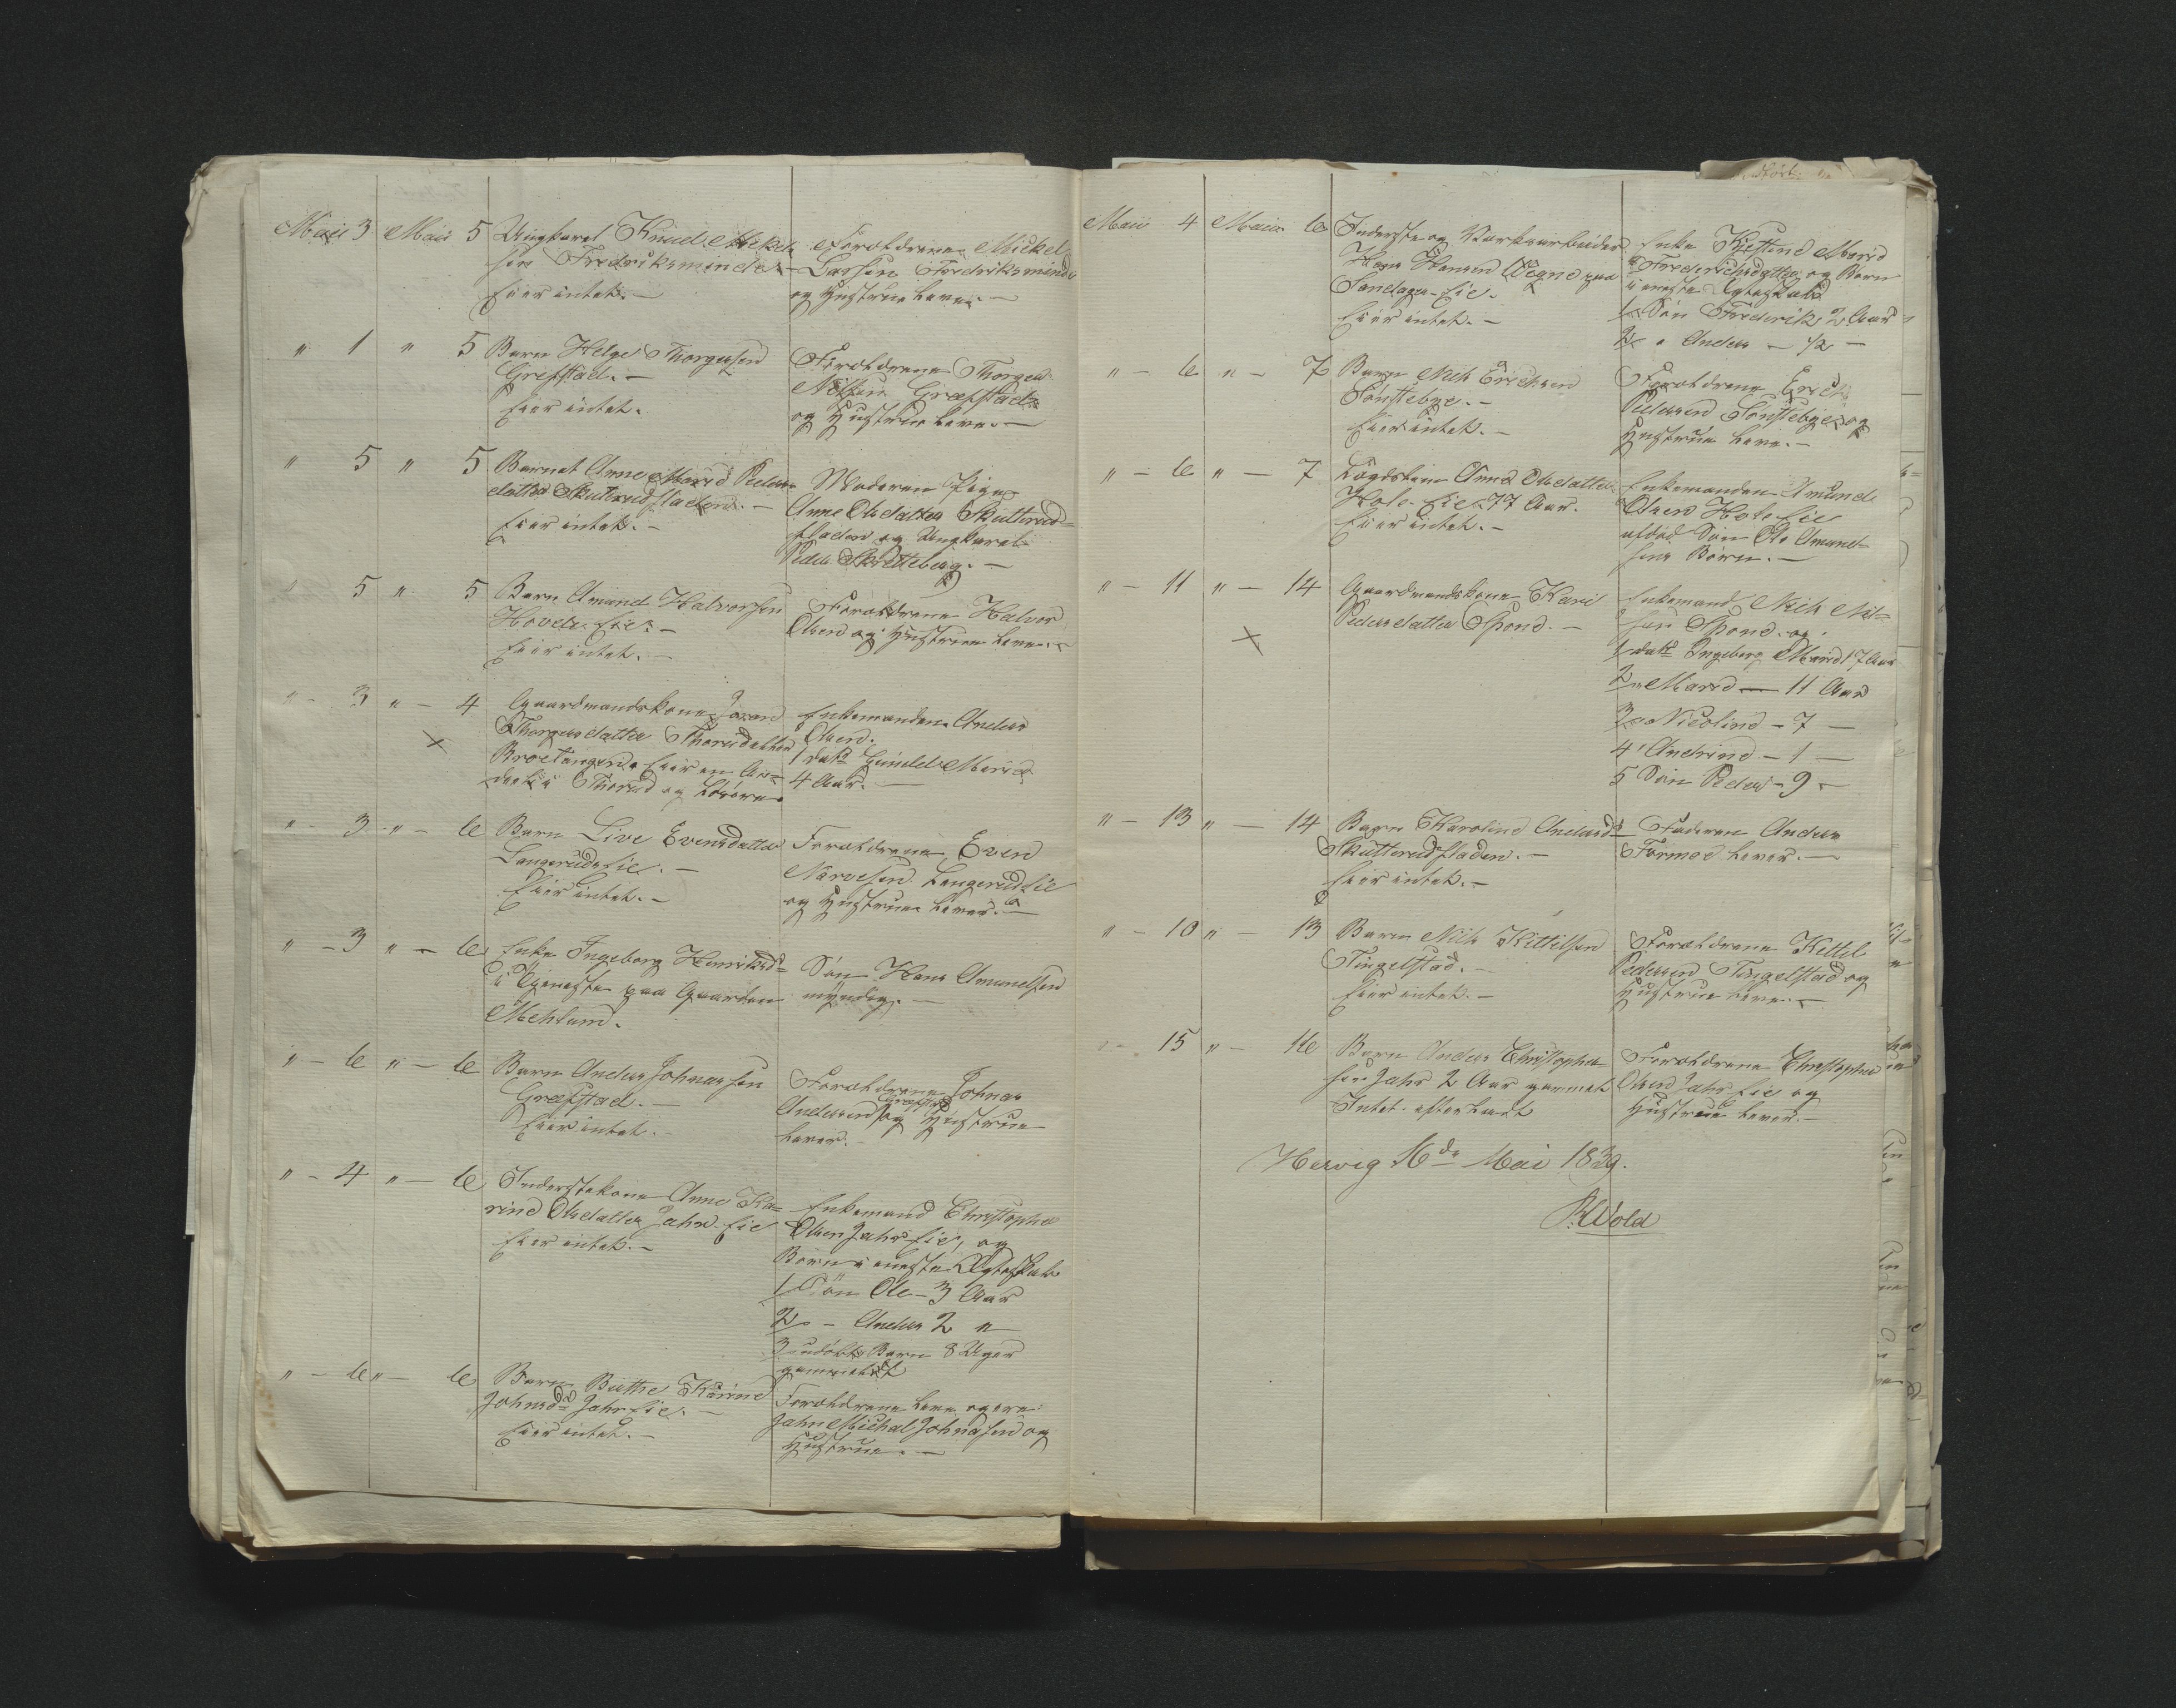 Maii 3 Maii 5 Ungkarl Knud Mickel-
sen Fredriksminde.
Eier intet.
Forældrene Mickel
Larsen Fredriksminde
og Hustrue leve.
" 1 " 5 Barn Helge Thorgersen
Grefstad.
Eier intet.
Forældrene Thorger
Nilsen Græfstad
og Hustrue leve.
" 5 " 5 Barnet Anne Marie Peders-
datter Skutterudfladen.
Eier intet.
Moderen Pige
Anne Olsdatter Skutterud-
fladen og Ungkarl
Peder Skretteberg.
5 " 5 Barn Amund Halvorsen
Hovels Eie.
Eier intet.
Forældrene Halvor
Olsen og Hustrue leve.
" - 3 " - 4 Gaardmandskone Joran
Thorgersdatter Thorud
Eier en An-
deel i Thorud og Løsøre.
Enkemanden Anders
Olsen.
1 datr Gunild Marie
4 Aar.
" - 3 " - 6 Barn Live Evensdatter
Langerudseie.
Eier intet.
Forældrene Even
Narvesen Langerudseie
og Hustrue lever.
" - 3 " - 6 Enke Ingeborg Henriksd-
i Tjeneste paa Gaarden
Mehlum.
Søn Hans Amundsen
myndig.
" - 6 " - 6 Barn Anders Johnassen
Græfstad.
Eier intet.
Forældrene Johnas
Andersen Græfstad og Hustrue
lever.
" - 4 " - 6 Inderstekone Anne Ka-
rine Olsdatter Jahr Eie
Eier intet.
Enkemand Christopher
Olsen Jahrs Eie, og
Børn i eneste Ægteskab
1 Søn Ole - 3 Aar
2 - Anders 2 "
3 udøbt Barn 8 Uger
gammelt
" - 6 " - 6 Barn Birthe Karine
Johnsdr Jahrseie.
Eier intet.
Forældrene leve og ere
John Michal Johnasen og
Hustrue.
Maii 4 Maii 6 Inderste og Værksarbeider
Hans Hansen Vegne paa
Sandager Eie.
Eier intet.
Enke Kjestine Marie
Frederichsdatter og Børn
i eneste Ægteskab
1 Søn Frederik 2 Aar
2 " Anders - 1/2 -
" - 6 " - 7 Barn Nils Erichsen
Sønstebye.
Eier intet.
Forældrene Erich
Pedersen Sønstebye og
Hustrue leve.
" - 6 " - 7 Lægdslem Anne Olsdatter
Hole Eie 77 Aar.
Eier intet.
Enkemanden Amund
Olsen Hole Eie
afdød Søn Ole Amund-
sens Børn.
" - 11 " - 14 Gaardmandskone Kari
Pedersdatter Spone.
Enkemand Nils Nil-
sen Spone. og
1 datr Ingeborg Marie 17 Aar
2 " Maren - 11 Aar
3 " Nicoline - 7 -
4 " Andrine - 1 -
5 Søn Peder - 9 -
" - 13 " - 14 Barn Karoline Andersdr
Skutterudfladen.
Eier intet.
Faderen Anders
Formoe lever.
" - 10 " - 13 Barn Nils Kittilsen
Tingelstad.
Eier intet.
Forældrene Kettel
Pedersen Tingelstad og
Hustrue leve.
15 " - 16 Barn Anders Christopher-
sen Jahr 2 Aar gammel
Intet efterladt
Forældrene Christopher
Olsen Jahr Eie og
Hustrue lever.
Hervig 16de Mai 1839.
RWold